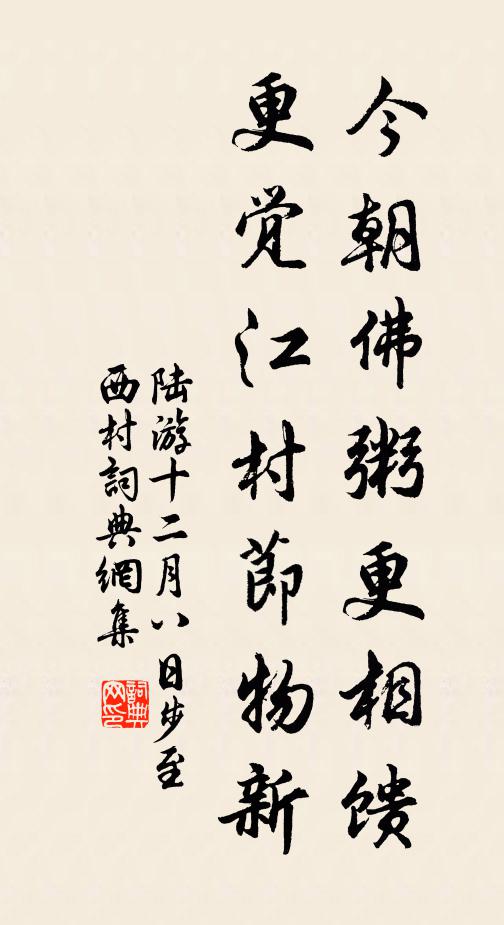 今朝佛粥更相馈
更觉江村節物新
陆游十二月八日步至
西村詞典網集
詞典网印